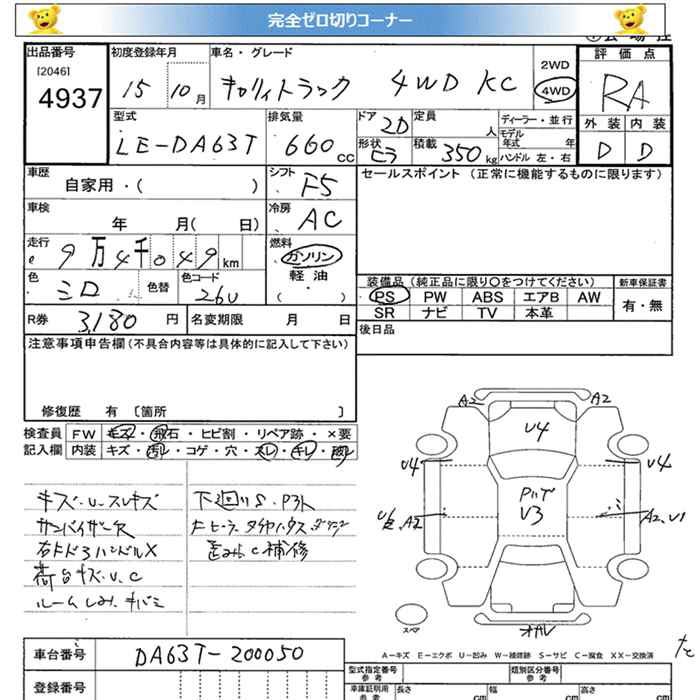 完全ゼロ切りコーナー
出品番号 初度登録年月 車名・グレード 2WD 評価点
[2046] 4937 15 10月 キャリィトラック 4WD KC 4WD RA
型式 排気量 ドア 2D 定員 人 ディーラー・並行 外装 内装
LE-DA63T 660cc 形状 積載 350kg モデル年式 年 D D
ハンドル 左・右
車歴 シフト F5 セールスポイント (正常に機能するものに限ります)
自家用・( )
車検 冷房 AC
年 月( 日)
走行 9万4千049km 燃料 ガソリン
軽油
( )
色 シロ 色替 色コード 26U 装備品 (純正品に限り○をつけてください) 新車保証書
PS PW ABS エアB AW 有・無
SR ナビ TV 本革
R券 3,180円 名変期限 月 日 後日品
注意事項申告欄(不具合内容等は具体的に記入して下さい)
修復歴 有 〔箇所 〕
検査員 FW キズ・飛石・ヒビ割・リペア跡・×要
記入欄 内装 キズ・汚レ・コゲ・穴・スレ・キレ・
キズ.U.スレキズ
サンバイザース
ハンドルX
荷台キズ.U.C
ルームしみ.キバミ
下廻りS.
C補修
A2 A2
U4
U4 U4
V3
A2 A2,U1
スペア
A-キズ E-エクボ U-凹み W-補修跡 S-サビ C-腐食 XX-交換済
車台番号 DA63T-200050
登録番号
型式指定番号 参考 類別区分番号 参考
車庫証明用 参考 長さ cm 幅 cm 高さ cm